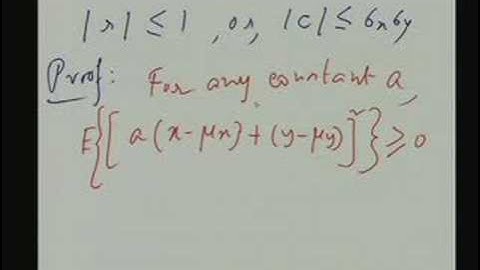 |r| ≤ 1 , or, |c| ≤ σxσy
Proof: For any constant a,
E{[a(x-μx)+(y-μy)]²} ≥ 0